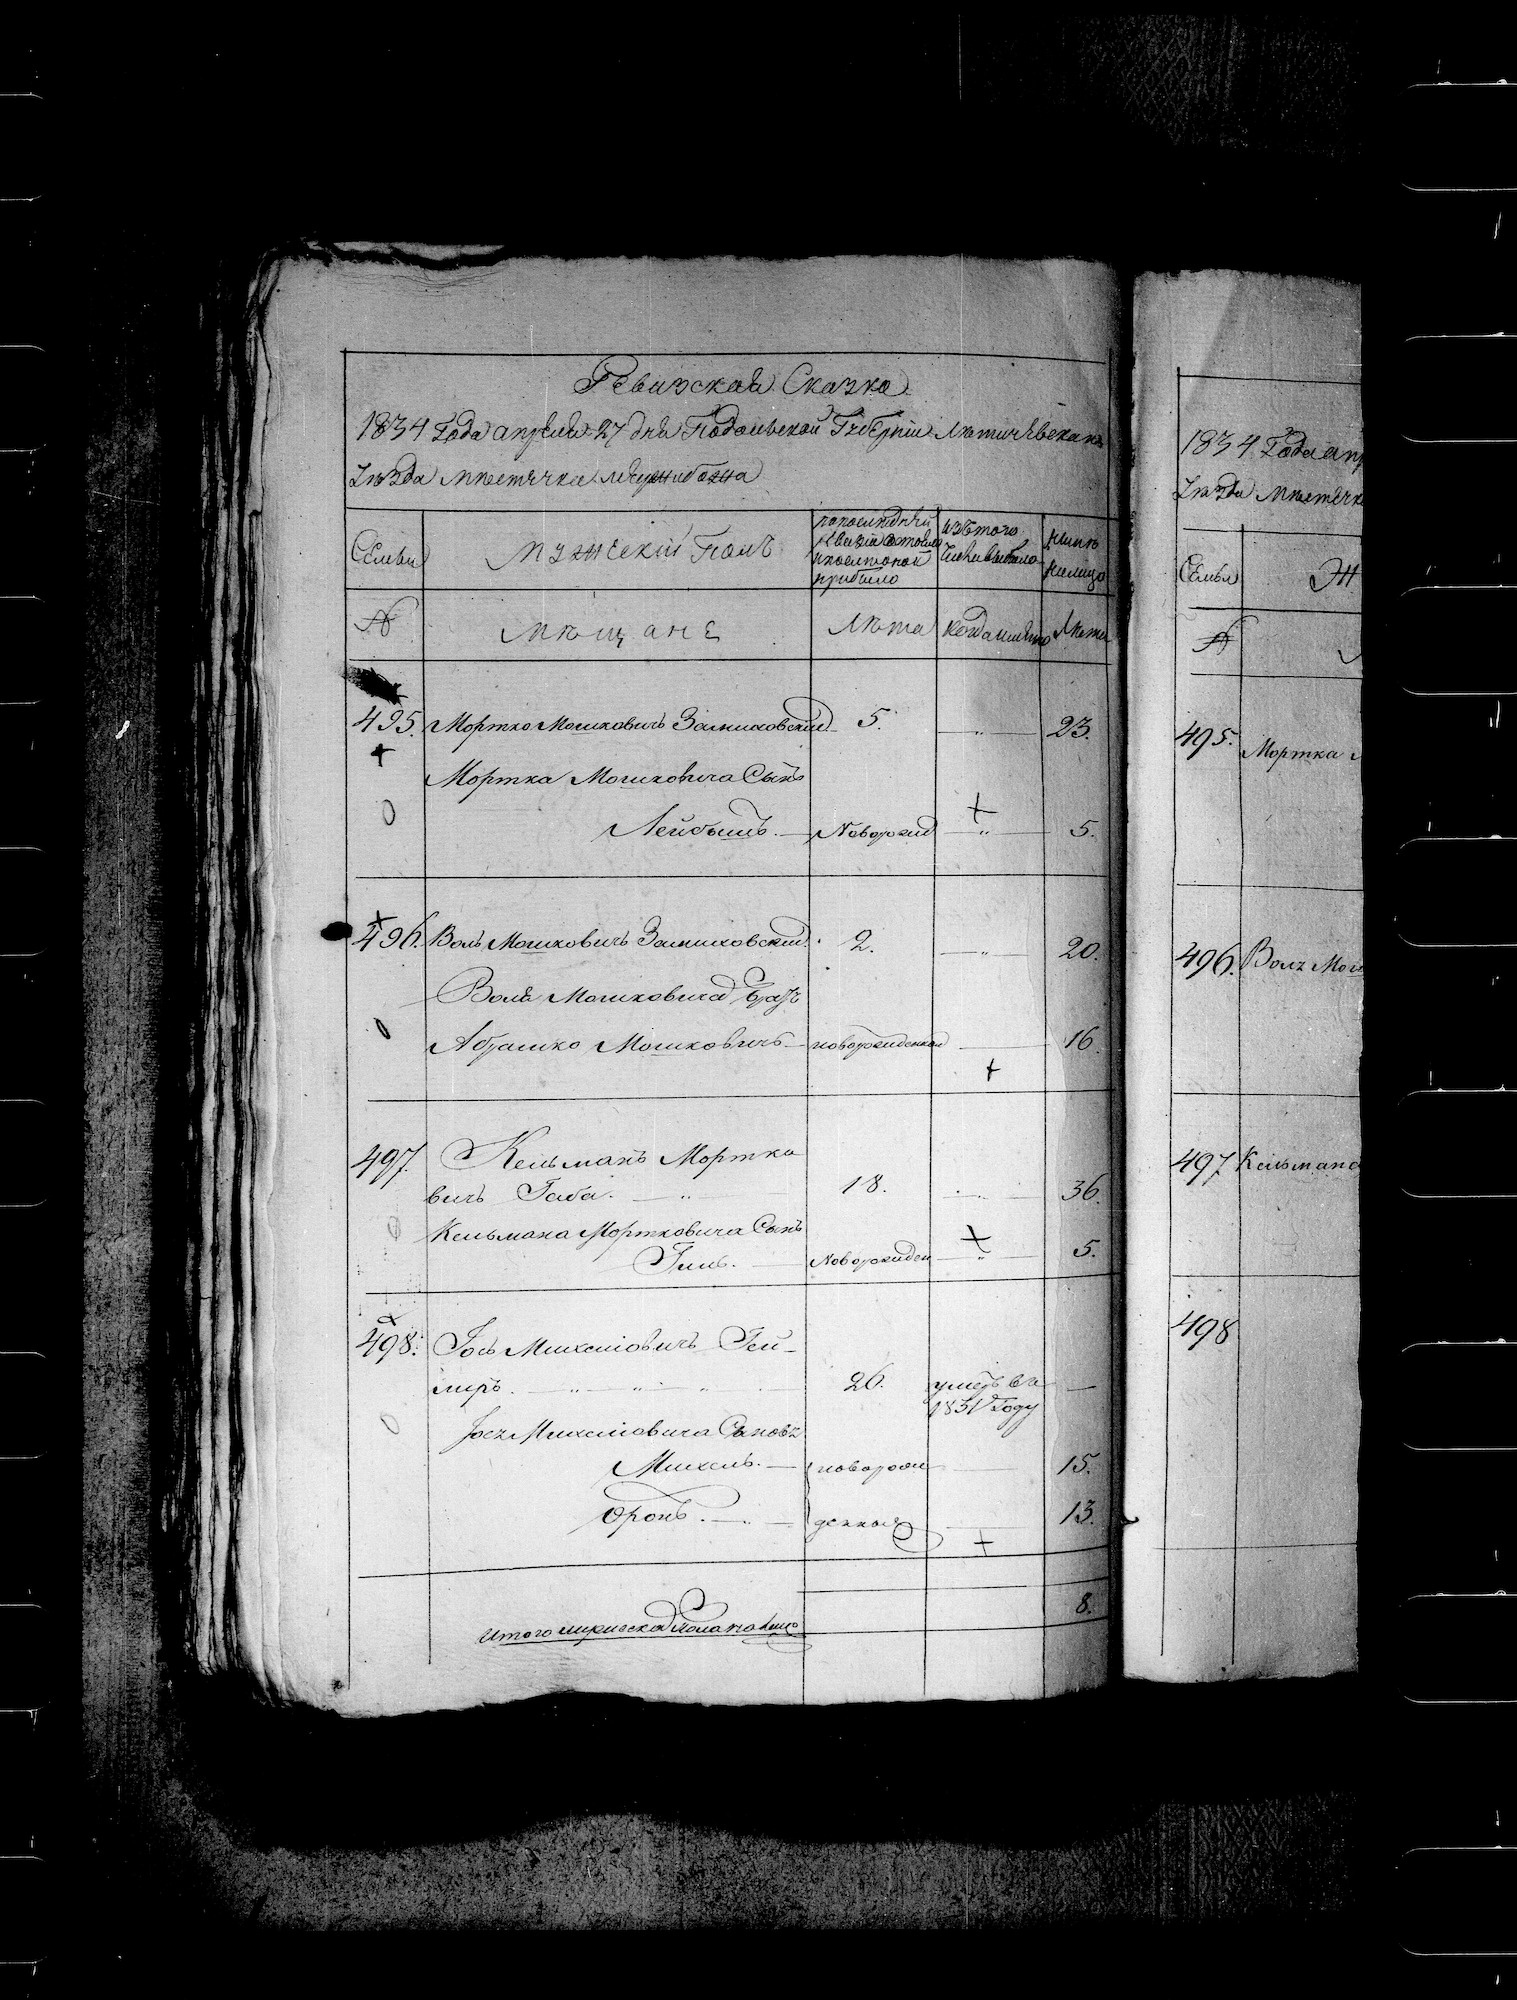 Ревизская Сказка
1834 Года апреля 27 дня Подольской Губернiи Лѣтичевскаго
Уѣзда мѣстечка Меджибожа
Семьи
мужескiй Полъ
по последней
ревизiи состояло
и после оной
прибыло
изъ того
числа выбыло
нынѣ
на лицо
№
мѣщане
Лѣта
когда именно
Лѣта
495. Мортко Мошковичъ Замиховскiй 5. „ 23.
Мортка Мошковича Сынъ
Лейбышъ. Новорожд „ 5.
496. Воль Мошковичъ Замиховскiй 2. „ 20.
Воля Мошковича Братъ
Абрамко Мошковичъ новорожденной 16.
497. Кельманъ Мортко
вичъ Габа. „ 18. „ 36.
Кельмана Мортковича Сынъ
Гиль. Новорожден „ 5.
498. Iось Михелiовичъ Гей-
меръ. „ „ „ 26. умеръ въ
1831 Году
Iося Михелiовича Сыновья
Михель. новорож 15.
Оронъ. „ денныя 13.
8.
Итого мужеска пола на лицо
1834 Года апр
Уѣзда мѣстечк
Семья
Ж
№
495. Мортка
496. Воля Мош
497 Кельмана
498